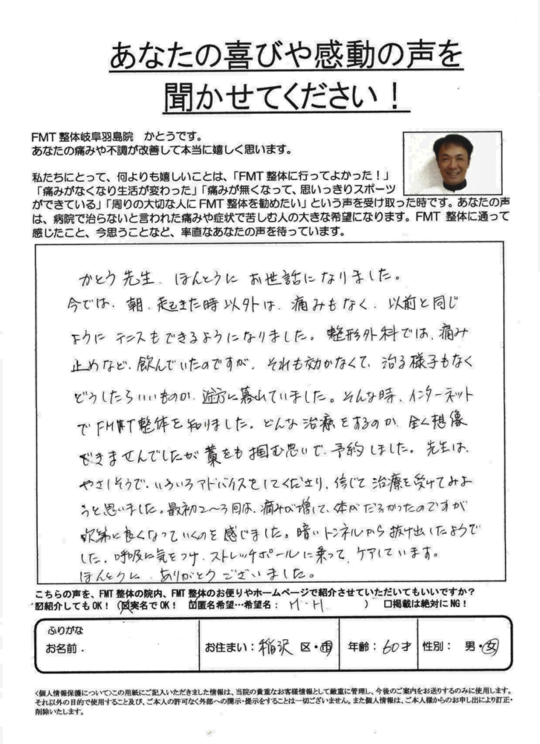 あなたの喜びや感動の声を
聞かせてください！
FMT整体岐阜羽島院　かとうです。
あなたの痛みや不調が改善して本当に嬉しく思います。
私たちにとって、何よりも嬉しいことは、「FMT整体に行ってよかった！」
「痛みがなくなり生活が変わった」「痛みが無くなって、思いっきりスポーツ
ができている」「周りの大切な人にFMT整体を勧めたい」という声を受け取った時です。あなたの声
は、病院で治らないと言われた痛みや症状で苦しむ人の大きな希望になります。FMT整体に通って
感じたこと、今思うことなど、率直なあなたの声を待っています。
かとう先生、ほんとうに お世話になりました。
今では、朝、起きた時以外は、痛みもなく、以前と同じ
ように テニスもできるようになりました。整形外科では、痛み
止めなど、飲んでいたのですが、それも効かなくて、治る様子もなく
どうしたらいいものか、途方に暮れていました。そんな時、インターネット
でFMT整体を知りました。どんな治療をするのか、全く想像
できませんでしたが 藁をも掴む思いで、予約しました。先生は、
やさしそうで、いろいろアドバイスをしてくださり、信じて 治療を受けてみよ
うと思いました。最初2〜3回は、痛みが増して、体がだるかったのですが
次第に良くなっていくのを感じました。暗いトンネルから抜け出したようで
した。呼吸に気をつけ、ストレッチポールに乗って、ケアしています。
ほんとうに、ありがとうございました。
こちらの声を、FMT整体の院内、FMT整体のお便りやホームページで紹介させていただいてもいいですか？
☑紹介してもOK！（☒実名でOK！ ☑匿名希望…希望名： M・H ） □掲載は絶対にNG！
ふりがな
お名前．
お住まい：稲沢 区・市
年齢：60才
性別：　男・女
〈個人情報保護について〉この用紙にご記入いただきました情報は、当院の貴重なお客様情報として厳重に管理し、今後のご案内をお送りするのみに使用します。
それ以外の目的で使用すること及び、ご本人の許可なく外部への開示・提示をすることは一切ございません。また個人情報は、ご本人様からのお申し出により訂正・
削除いたします。